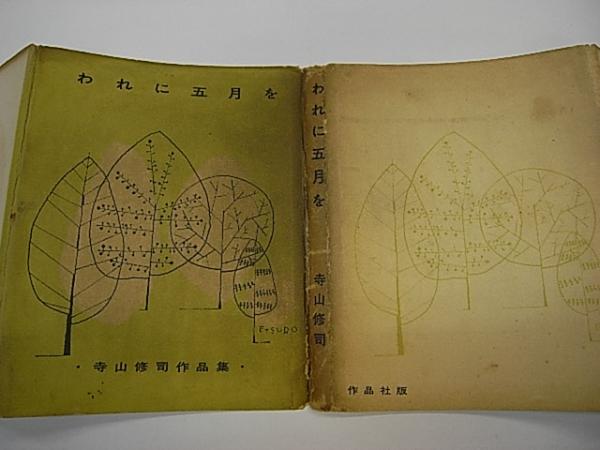 われに五月を
E+SURO
・寺山修司作品集・
われに五月を
寺山修司
作品社版